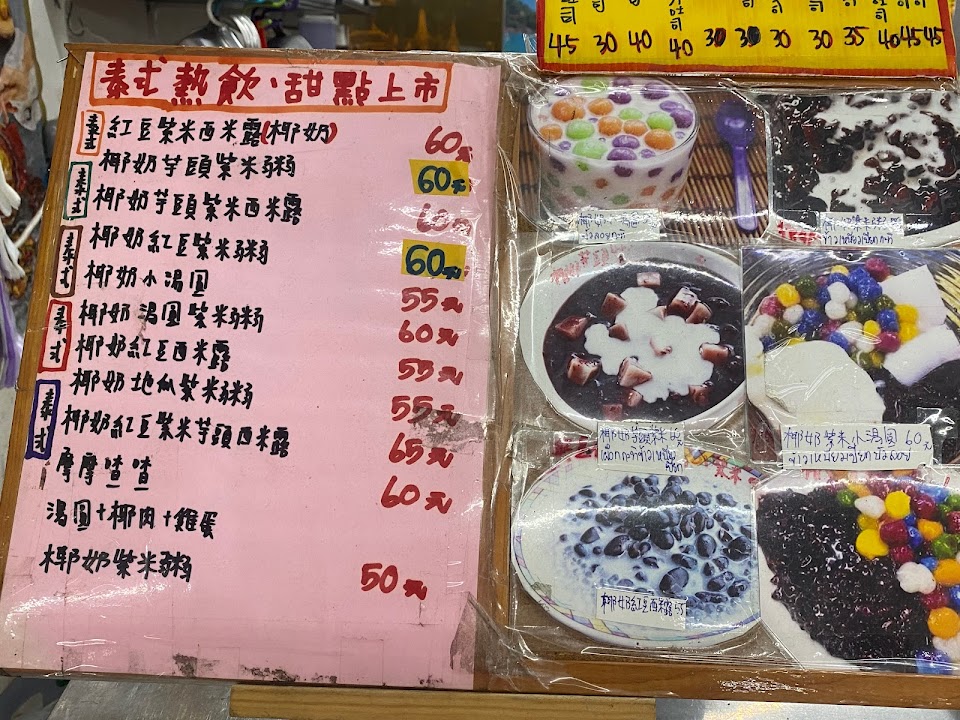 司
45 30 40 40 30 30 30 30 35 40 45 45
泰式熱飲、甜點上市
泰式 紅豆紫米西米露(椰奶) 60元
椰奶芋頭紫米粥 60元
泰式 椰奶芋頭紫米西米露 60元
椰奶紅豆紫米粥 60元
泰式 椰奶小湯圓 55元
椰奶湯圓紫米粥 60元
泰式 椰奶紅豆西米露 55元
椰奶地瓜紫米粥 55元
泰式 椰奶紅豆紫米芋頭西米露 65元
摩摩喳喳 60元
湯圓+椰肉+雞蛋
椰奶紫米粥 50元
椰奶紫米小湯圓 60元
椰奶紅豆西米露 55